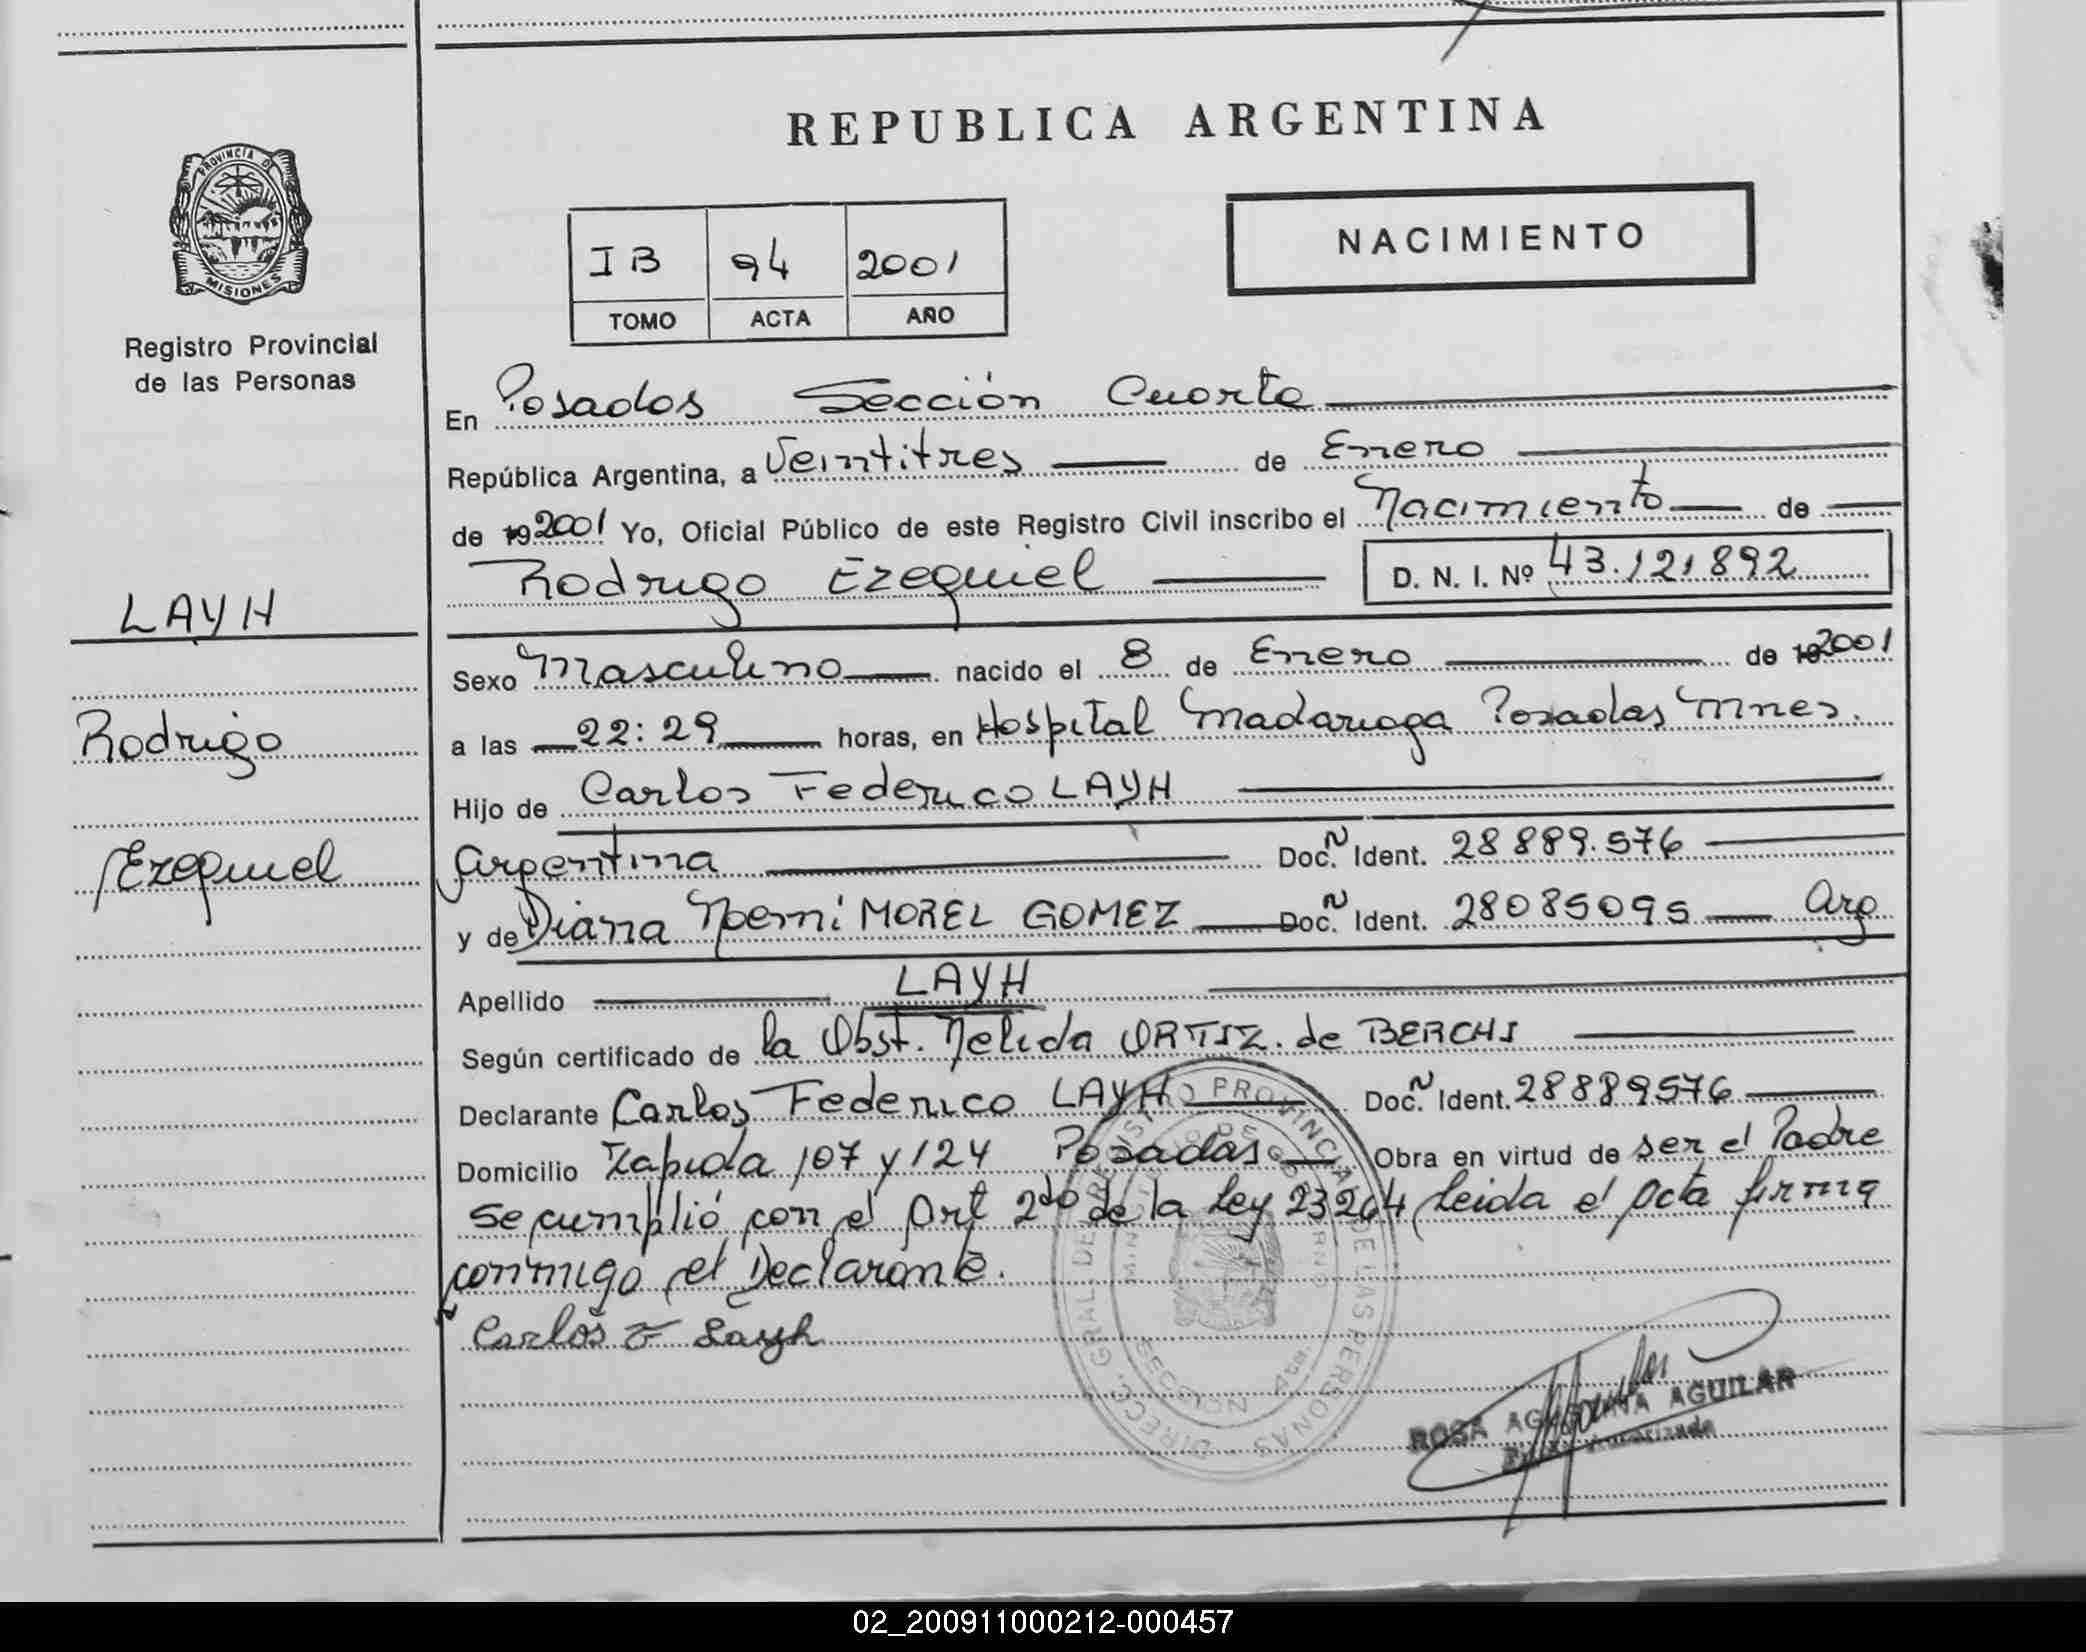 REPUBLICA ARGENTINA
PROVINCIA DE
MISIONES
Registro Provincial
de las Personas
IB 94 2001
TOMO ACTA AÑO
NACIMIENTO
En Posadas Sección Cuarta
República Argentina, a Veintitres de Enero
de 19 2001 Yo, Oficial Público de este Registro Civil inscribo el Nacimiento de
Rodrigo Ezequiel D. N. I. Nº 43.121892
LAYH
Rodrigo
Ezequiel
Sexo Masculino nacido el 8 de Enero de 19 2001
a las 22:29 horas, en Hospital Madariaga Posadas Mnes.
Hijo de Carlos Federico LAYH
Argentina Doc. Ident. 28889.576
y de Diana Noemi MOREL GOMEZ Doc. Ident. 28085095 Arg
Apellido LAYH
Según certificado de la Obst. Nelida ORTIZ. de BERCHI
Declarante Carlos Federico LAYH Doc. Ident. 28889576
Domicilio Zapiola 107 y 124 Posadas Obra en virtud de ser el Padre
se cumplió con el Art 2do de la Ley 23264 Leida el acta firma
conmigo el Declarante.
Carlos F Layh
DIRECC. GRAL. DEL REGISTRO PROVINCIAL DE LAS PERSONAS
MINISTERIO DE GOBIERNO
SECCION 4ta.
ROSA AGUSTINA AGUILAR
Autorizada
02_200911000212-000457